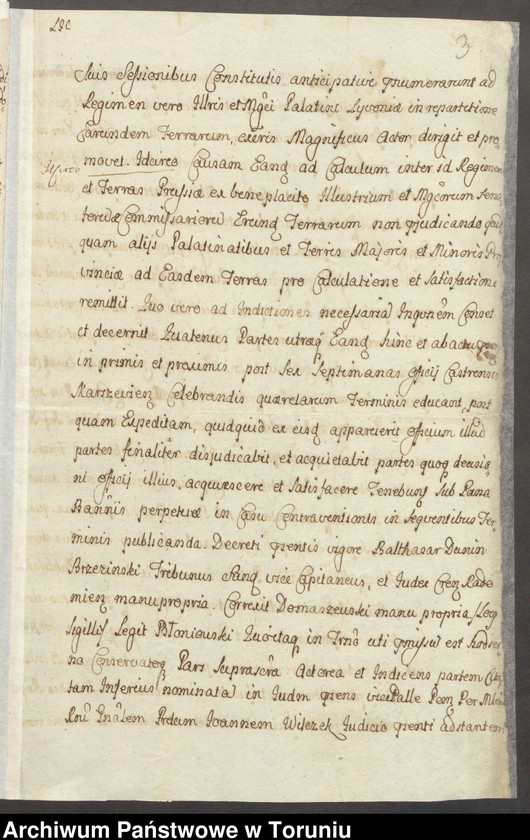 3
Suis Sessionibus Constitutis anticipative gnumerarunt ad
Regimen vero Illris et Mgci Palatini Lyvoniæ in repartitione
Earundem Terrarum, exiris Magnificus Actor dirigit et pro
movet. Idcirco Causam Eang ad Calculum inter id Regimen
et Terras Prussiæ ex beneplacito Illustrium et Mgcorum Sena
Commissarioru Erung Terrarum non gjudicando
quam alijs Palatinatibus et Terris Majoris et Minoris Pro
vinciæ ad Easdem Terras pro Calculatione et Satisfactione
remittit. Quo vero ad Indictionem necessariam Conset
et decernit Quatenus Partes utræq Eang hinc et ab
in primis et proximis post Sex Septimanas officij Castrensis
Celebrandis quærelarum Terminis educant, post
quam Expeditam, quidquid ex eisq apparuerit officium illud
partes finaliter disjudicabit, et acquietabit partes quoq decisio
ni officij illius, acquiescere et Satisfacere Tenebung Sub Pæna
Bannis perpetuæ in Casu Contraventionis in Sequentibus Ter
minis publicanda. Decreti gsentis vigore Balthasar Dunin
Brzezinski Tribunus Sang vice Capitaneus, et Iudex Rado
mien manu propria. Correxit Domaszewski manu propria
Sigilli Legit Błoniowski in Trno uti gmissu est hodier
na Conservateq Pars Suprascra Actorea et Indicens partem
tam Inferius nominata in Iudm gsens
Prdum Ioannem Wilczek Iudicio gsenti adstantem
Archiwum Państwowe w Toruniu